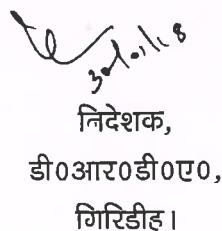 30/01/18
निदेशक,
डी०आर०डी०ए०,
गिरिडीह।